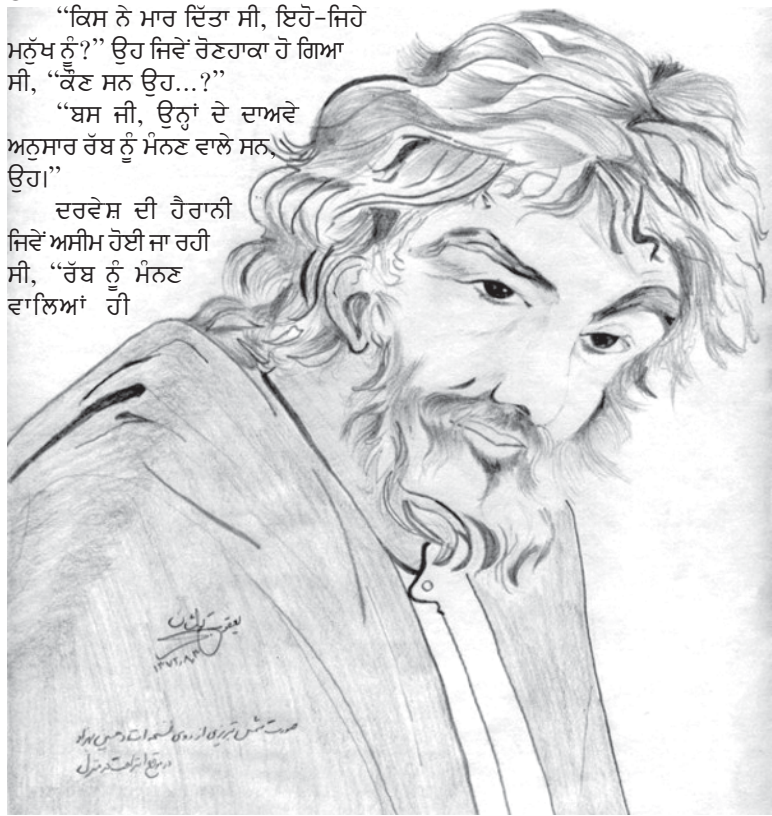 “ਕਿਸ ਨੇ ਮਾਰ ਦਿੱਤਾ ਸੀ, ਇਹੋ-ਜਿਹੇ
ਮਨੁੱਖ ਨੂੰ?” ਉਹ ਜਿਵੇਂ ਰੋਣਹਾਕਾ ਹੋ ਗਿਆ
ਸੀ, “ਕੌਣ ਸਨ ਉਹ...?”
“ਬਸ ਜੀ, ਉਨ੍ਹਾਂ ਦੇ ਦਾਅਵੇ
ਅਨੁਸਾਰ ਰੱਬ ਨੂੰ ਮੰਨਣ ਵਾਲੇ ਸਨ,
ਉਹ।”
ਦਰਵੇਸ਼ ਦੀ ਹੈਰਾਨੀ
ਜਿਵੇਂ ਅਸੀਮ ਹੋਈ ਜਾ ਰਹੀ
ਸੀ, “ਰੱਬ ਨੂੰ ਮੰਨਣ
ਵਾਲਿਆਂ ਹੀ
صورت شمس تبریزی از روی